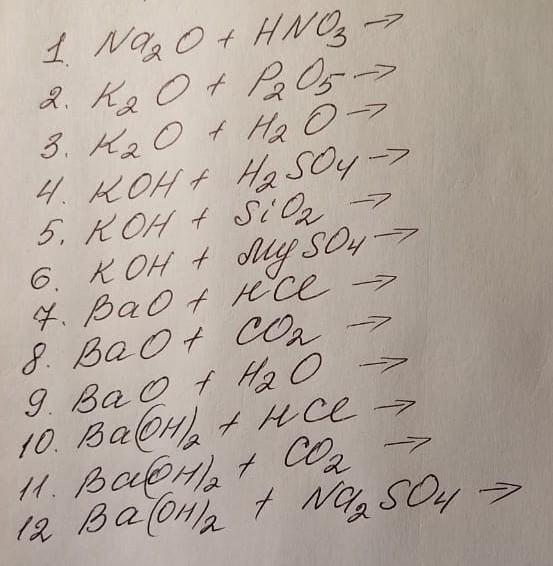 1. Na₂O + HNO₃ →
2. K₂O + P₂O₅ →
3. K₂O + H₂O →
4. KOH + H₂SO₄ →
5. KOH + SiO₂ →
6. KOH + MgSO₄ →
7. BaO + HCl →
8. BaO + CO₂ →
9. BaO + H₂O →
10. Ba(OH)₂ + HCl →
11. Ba(OH)₂ + CO₂ →
12 Ba(OH)₂ + Na₂SO₄ →